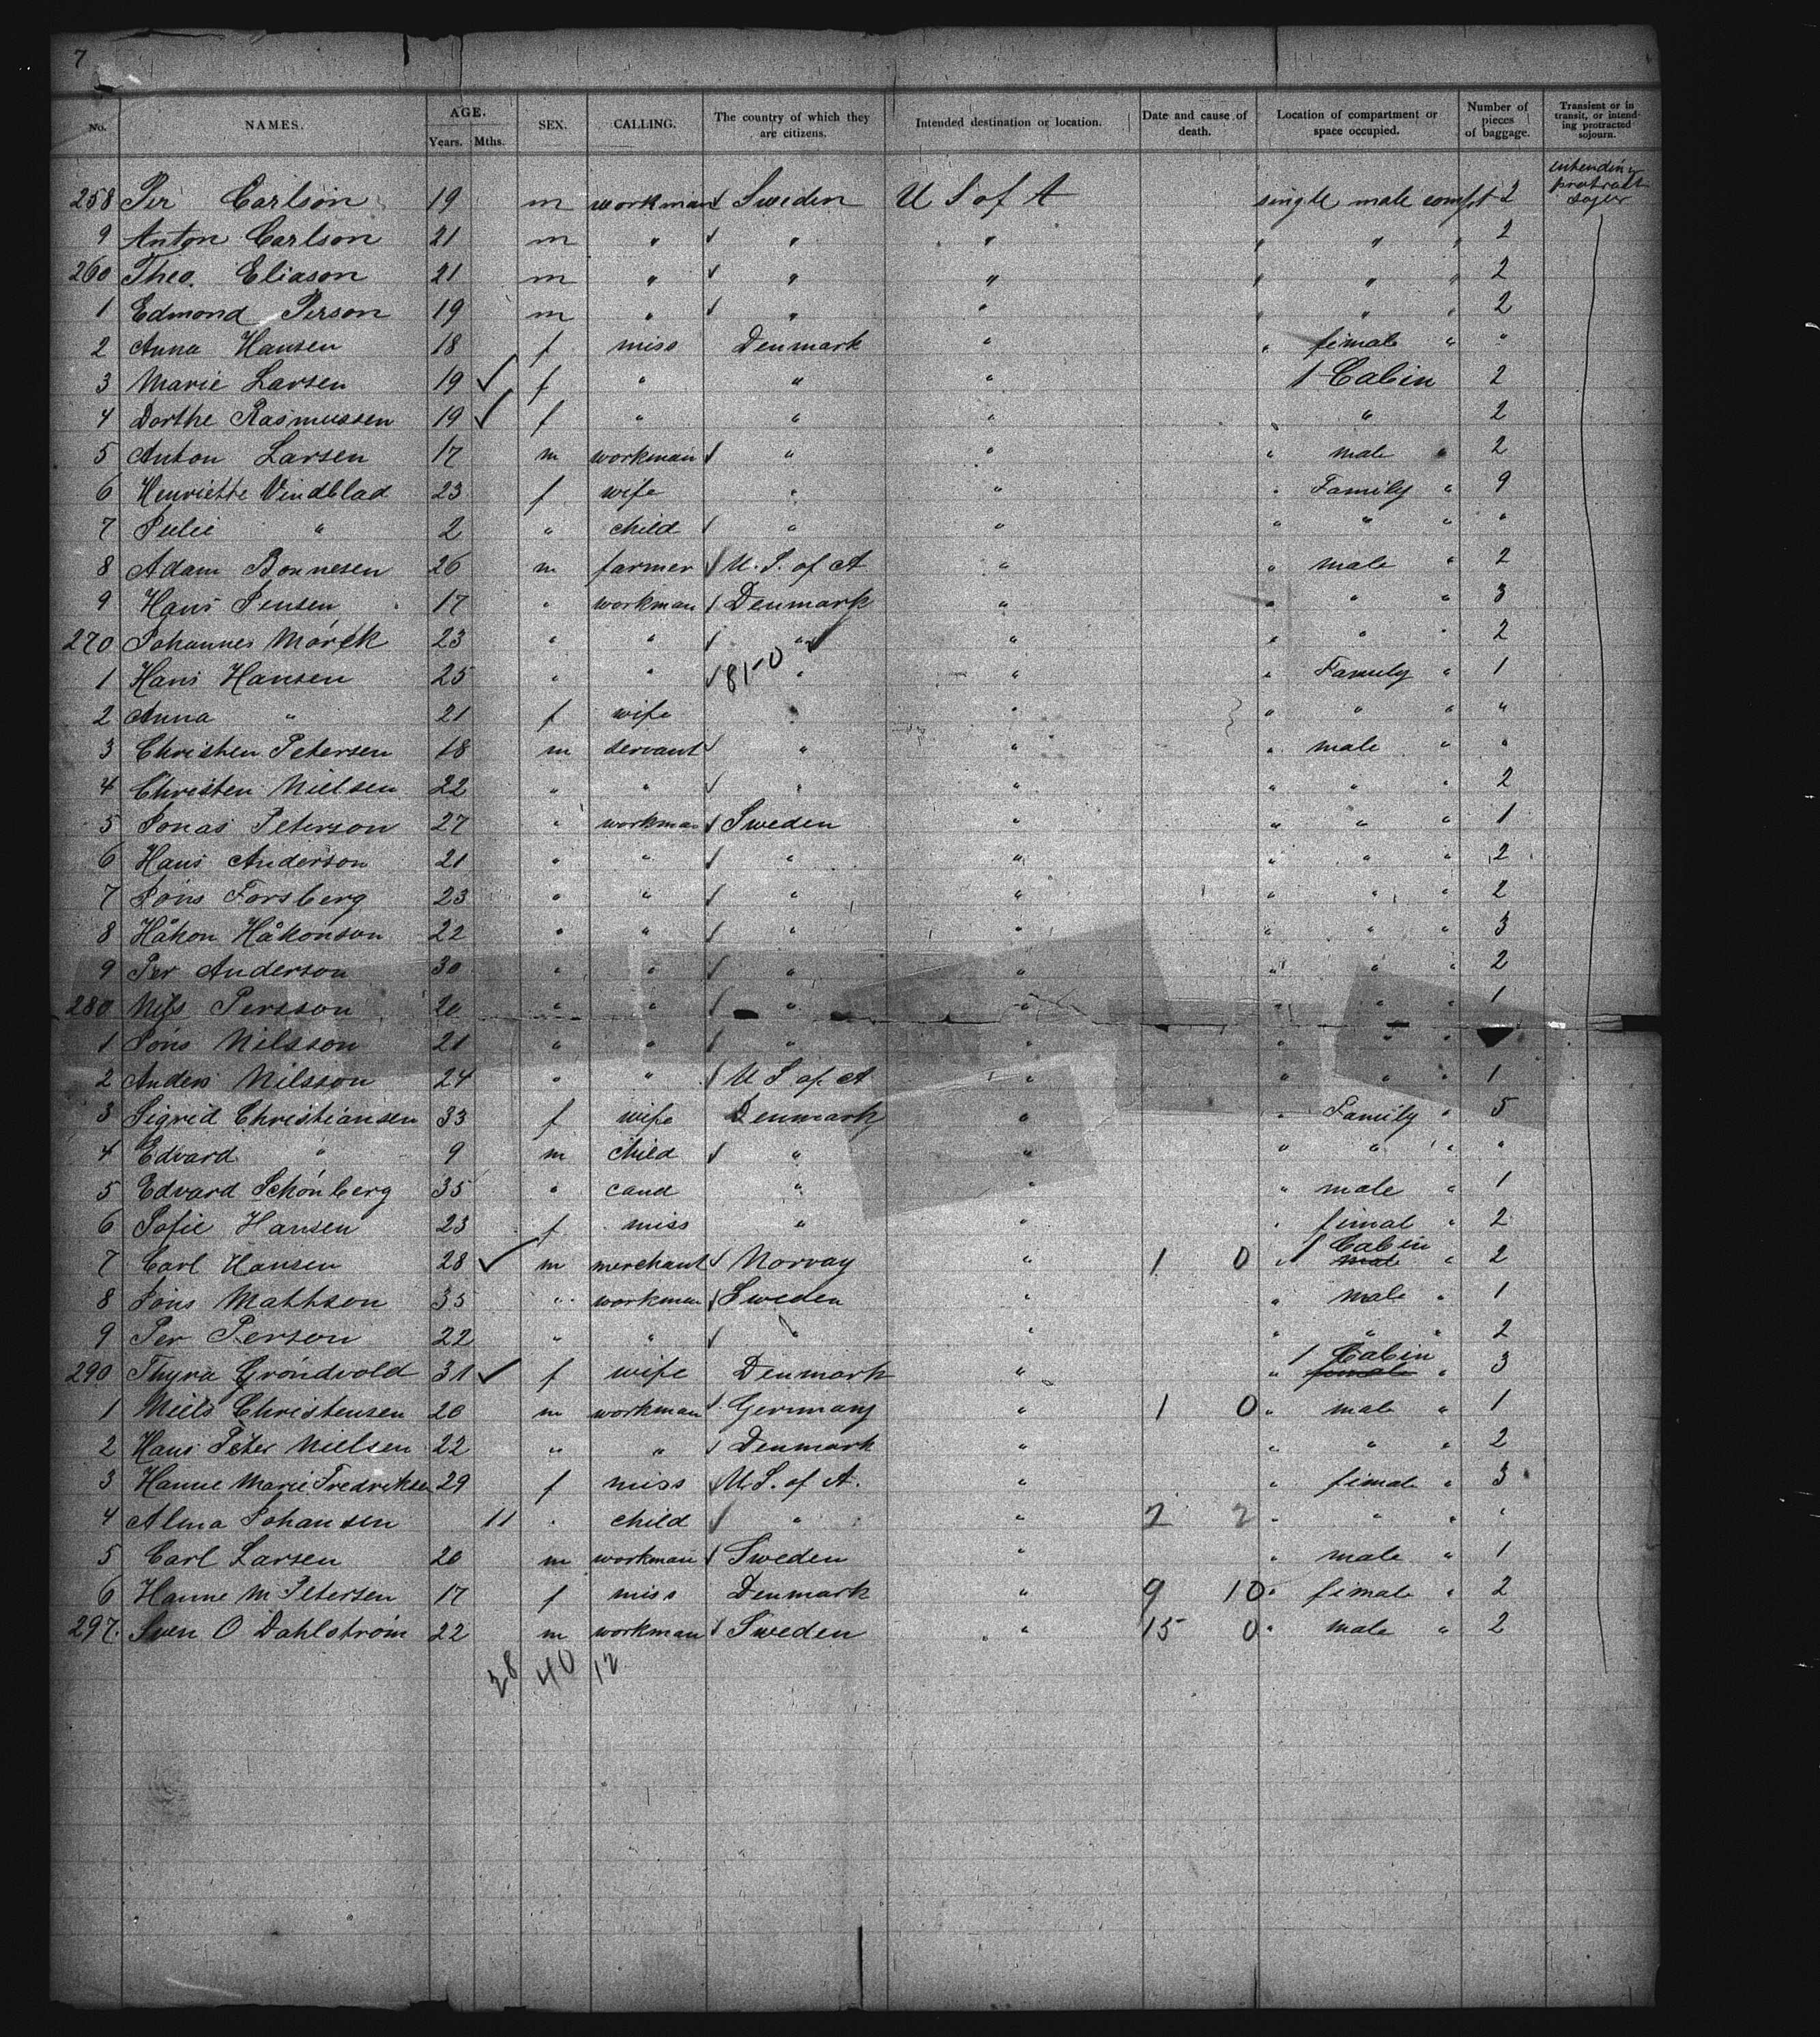 7
No. NAMES. AGE. Years. Mths. SEX. CALLING. The country of which they are citizens. Intended destination or location. Date and cause of death. Location of compartment or space occupied. Number of pieces of baggage. Transient or in transit, or intending protracted sojourn.
258 Per Carlson 19 m workman ✓ Sweden U S of A single male compt 2 intending protract sojur
9 Anton Carlson 21 m " ✓ " " " " " 2
260 Theo. Eliason 21 m " ✓ " " " " " 2
1 Edmond Person 19 m " ✓ " " " " " 2
2 Anna Hansen 18 f miss Denmark " " female " "
3 Marie Larsen 19 ✓ f " " " 1 Cabin 2
4 Dorthe Rasmussen 19 ✓ f " " " " 2
5 Anton Larsen 17 m workman ✓ " " " male " 2
6 Henriette Vindblad 23 f wife " " " Family " 9
7 Julie " 2 " child ✓ " " " " " "
8 Adam Bonnesen 26 m farmer ✓ U. S. of A " " male " 2
9 Hans Jensen 17 " workman ✓ Denmark " " " " 3
270 Johannes Mörck 23 " " ✓ " " " " " 2
1 Hans Hansen 25 " " ✓ 81-0 " " " Family " 1
2 Anna " 21 f wife " " " " " "
3 Christen Petersen 18 m servant ✓ " " " male " "
4 Christen Nielsen 22 " " ✓ " " " " " 2
5 Jonas Peterson 27 " workman ✓ Sweden " " " " 1
6 Hans Anderson 21 " " ✓ " " " " " 2
7 Jöns Forsberg 23 " " ✓ " " " " " 2
8 Håkon Håkonson 22 " " ✓ " " " " " 3
9 Per Anderson 30 " " ✓ " " " " " 2
280 Nils Persson 20 " " ✓ " " " " " 1
1 Jöns Nilsson 21 " " ✓ " " " " "
2 Anders Nilsson 24 " " ✓ U S of A " " " " 1
3 Sigrid Christiansen 33 f wife Denmark " " Family " 5
4 Edvard " 9 m child ✓ " " " " " "
5 Edvard Schönberg 35 " cand " " " male " 1
6 Sofie Hansen 23 f miss " " " fimal " 2
7 Carl Hansen 28 ✓ m merchant ✓ Norvay " 1 0 " 1 Cabin male " 2
8 Jöns Mathson 35 " workman ✓ Sweden " " male " 1
9 Per Person 22 " " ✓ " " " " " 2
290 Thyra Gröndvold 31 ✓ f wife Denmark " " 1 Cabin female " 3
1 Niels Christensen 20 m workman ✓ Germany " 1 0 " male " 1
2 Hans Peter Nielsen 22 " " ✓ Denmark " " " " 2
3 Hanne Marie Fredriksen 29 f miss ✓ U. S. of A. " " fimale " 3
4 Alma Johansen 11 " child ✓ " " 2 2 " " " "
5 Carl Larsen 20 m workman ✓ Sweden " " male " 1
6 Hanne M Petersen 17 f miss Denmark " 9 10 " fimale " 2
297. Sven O Dahlström 22 m workman ✓ Sweden " 15 0 " male " 2
28 40 12